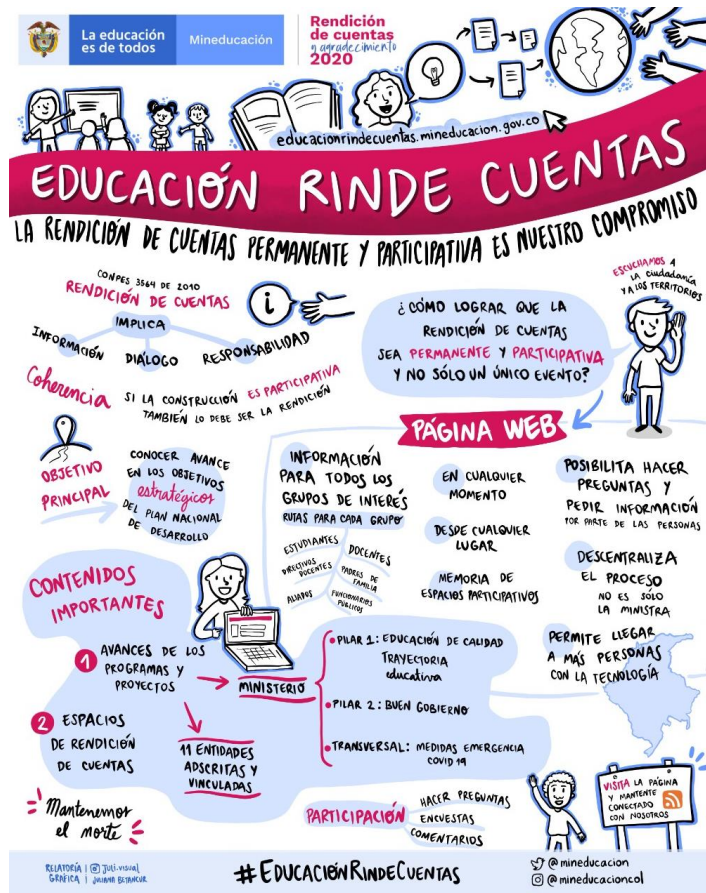 La educación
es de todos
Mineducación
Rendición
de cuentas
y agradecimiento
2020
educacionrindecuentas.mineducacion.gov.co
EDUCACIÓN RINDE CUENTAS
LA RENDICIÓN DE CUENTAS PERMANENTE Y PARTICIPATIVA ES NUESTRO COMPROMISO
CONPES 3564 DE 2010
RENDICIÓN DE CUENTAS
IMPLICA
INFORMACIÓN
DIÁLOGO
RESPONSABILIDAD
i
Coherencia
SI LA CONSTRUCCIÓN ES PARTICIPATIVA
TAMBIÉN LO DEBE SER LA RENDICIÓN
¿CÓMO LOGRAR QUE LA
RENDICIÓN DE CUENTAS
SEA PERMANENTE Y PARTICIPATIVA
Y NO SÓLO UN ÚNICO EVENTO?
ESCUCHAMOS A
LA CIUDADANÍA
Y A LOS TERRITORIOS
OBJETIVO
PRINCIPAL
CONOCER AVANCE
EN LOS OBJETIVOS
estratégicos
DEL PLAN NACIONAL
DE DESARROLLO
PÁGINA WEB
INFORMACIÓN
PARA TODOS LOS
GRUPOS DE INTERÉS
RUTAS PARA CADA GRUPO
ESTUDIANTES
DOCENTES
DIRECTIVOS
DOCENTES
PADRES DE
FAMILIA
ALIADOS
FUNCIONARIOS
PÚBLICOS
EN CUALQUIER
MOMENTO
DESDE CUALQUIER
LUGAR
MEMORIA DE
ESPACIOS PARTICIPATIVOS
POSIBILITA HACER
PREGUNTAS Y
PEDIR INFORMACIÓN
POR PARTE DE LAS PERSONAS
DESCENTRALIZA
EL PROCESO
NO ES SÓLO
LA MINISTRA
PERMITE LLEGAR
A MÁS PERSONAS
CON LA TECNOLOGÍA
CONTENIDOS
IMPORTANTES
1 AVANCES DE LOS
PROGRAMAS Y
PROYECTOS
MINISTERIO
• PILAR 1: EDUCACIÓN DE CALIDAD
TRAYECTORIA
educativa
• PILAR 2: BUEN GOBIERNO
• TRANSVERSAL: MEDIDAS EMERGENCIA
COVID 19
11 ENTIDADES
ADSCRITAS Y
VINCULADAS
2 ESPACIOS
DE RENDICIÓN
DE CUENTAS
Mantenemos
el norte
PARTICIPACIÓN
HACER PREGUNTAS
ENCUESTAS
COMENTARIOS
VISITA LA PÁGINA
Y MANTENTE
CONECTADO
CON NOSOTROS
RELATORÍA
GRÁFICA
@Juli.visual
JULIANA BETANCUR
#EDUCACIÓNRINDECUENTAS
@mineducacion
@mineducacioncol